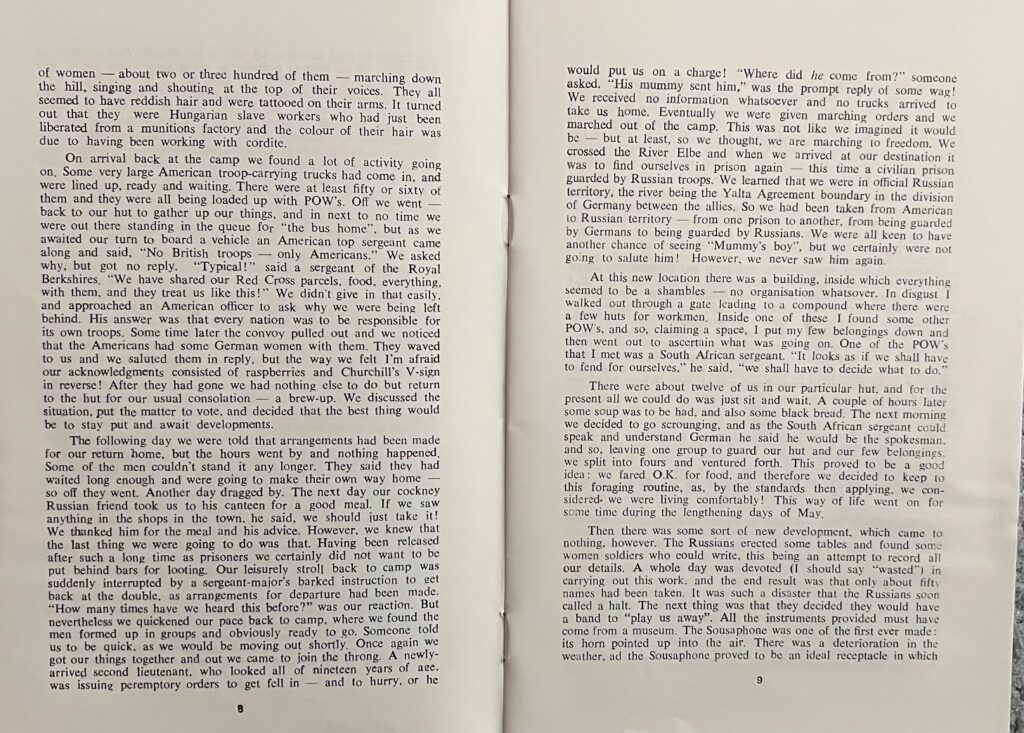 of women — about two or three hundred of them — marching down
the hill, singing and shouting at the top of their voices. They all
seemed to have reddish hair and were tattooed on their arms. It turned
out that they were Hungarian slave workers who had just been
liberated from a munitions factory and the colour of their hair was
due to having been working with cordite.
On arrival back at the camp we found a lot of activity going
on. Some very large American troop-carrying trucks had come in, and
were lined up, ready and waiting. There were at least fifty or sixty of
them and they were all being loaded up with POW's. Off we went —
back to our hut to gather up our things, and in next to no time we
were out there standing in the queue for "the bus home", but as we
awaited our turn to board a vehicle an American top sergeant came
along and said, "No British troops — only Americans." We asked
why, but got no reply. "Typical!" said a sergeant of the Royal
Berkshires, "We have shared our Red Cross parcels, food, everything,
with them, and they treat us like this!" We didn't give in that easily,
and approached an American officer to ask why we were being left
behind. His answer was that every nation was to be responsible for
its own troops. Some time later the convoy pulled out and we noticed
that the Americans had some German women with them. They waved
to us and we saluted them in reply, but the way we felt I'm afraid
our acknowledgments consisted of raspberries and Churchill's V-sign
in reverse! After they had gone we had nothing else to do but return
to the hut for our usual consolation — a brew-up. We discussed the
situation, put the matter to vote, and decided that the best thing would
be to stay put and await developments.
The following day we were told that arrangements had been made
for our return home, but the hours went by and nothing happened.
Some of the men couldn't stand it any longer. They said they had
waited long enough and were going to make their own way home —
so off they went. Another day dragged by. The next day our cockney
Russian friend took us to his canteen for a good meal. If we saw
anything in the shops in the town, he said, we should just take it!
We thanked him for the meal and his advice. However, we knew that
the last thing we were going to do was that. Having been released
after such a long time as prisoners we certainly did not want to be
put behind bars for looting. Our leisurely stroll back to camp was
suddenly interrupted by a sergeant-major's barked instruction to get
back at the double, as arrangements for departure had been made.
"How many times have we heard this before?" was our reaction. But
nevertheless we quickened our pace back to camp, where we found the
men formed up in groups and obviously ready to go. Someone told
us to be quick, as we would be moving out shortly. Once again we
got our things together and out we came to join the throng. A newly-
arrived second lieutenant, who looked all of nineteen years of age,
was issuing peremptory orders to get fell in — and to hurry, or he
8
would put us on a charge! "Where did he come from?" someone
asked. "His mummy sent him," was the prompt reply of some wag!
We received no information whatsoever and no trucks arrived to
take us home. Eventually we were given marching orders and we
marched out of the camp. This was not like we imagined it would
be — but at least, so we thought, we are marching to freedom. We
crossed the River Elbe and when we arrived at our destination it
was to find ourselves in prison again — this time a civilian prison
guarded by Russian troops. We learned that we were in official Russian
territory, the river being the Yalta Agreement boundary in the division
of Germany between the allies. So we had been taken from American
to Russian territory — from one prison to another, from being guarded
by Germans to being guarded by Russians. We were all keen to have
another chance of seeing "Mummy's boy", but we certainly were not
going to salute him! However, we never saw him again.
At this new location there was a building, inside which everything
seemed to be a shambles — no organisation whatsover. In disgust I
walked out through a gate leading to a compound where there were
a few huts for workmen. Inside one of these I found some other
POW's, and so, claiming a space, I put my few belongings down and
then went out to ascertain what was going on. One of the POW's
that I met was a South African sergeant. "It looks as if we shall have
to fend for ourselves," he said, "we shall have to decide what to do."
There were about twelve of us in our particular hut, and for the
present all we could do was just sit and wait. A couple of hours later
some soup was to be had, and also some black bread. The next morning
we decided to go scrounging, and as the South African sergeant could
speak and understand German he said he would be the spokesman,
and so, leaving one group to guard our hut and our few belongings,
we split into fours and ventured forth. This proved to be a good
idea: we fared O.K. for food, and therefore we decided to keep to
this foraging routine, as, by the standards then applying, we con-
sidered we were living comfortably! This way of life went on for
some time during the lengthening days of May.
Then there was some sort of new development, which came to
nothing, however. The Russians erected some tables and found some
women soldiers who could write, this being an attempt to record all
our details. A whole day was devoted (I should say "wasted") in
carrying out this work, and the end result was that only about fifty
names had been taken. It was such a disaster that the Russians soon
called a halt. The next thing was that they decided they would have
a band to "play us away". All the instruments provided must have
come from a museum. The Sousaphone was one of the first ever made:
its horn pointed up into the air. There was a deterioration in the
weather, ad the Sousaphone proved to be an ideal receptacle in which
9